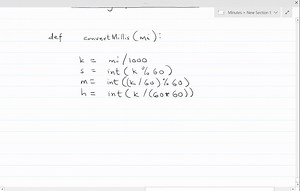 Minutes > New Section 1
def convertMillis(mi):
k = mi/1000
s = int(k%60)
m = int((k/60)%60)
h = int(k/(60*60))